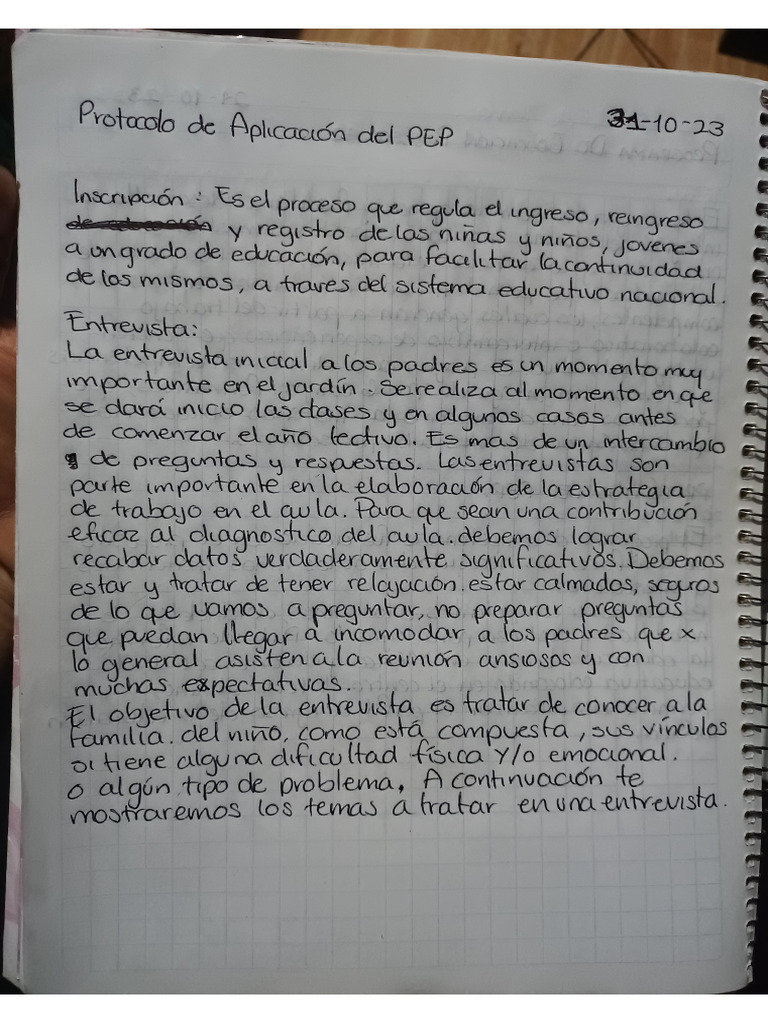 Protocolo de Aplicación del PEP
31-10-23
Inscripción: Es el proceso que regula el ingreso, reingreso
y registro de las niñas y niños, jovenes
a un grado de educación, para facilitar la continuidad
de los mismos, a traves del sistema educativo nacional.
Entrevista:
La entrevista inicial a los padres es un momento muy
importante en el jardín. Se realiza al momento en que
se dará inicio las clases y en algunos casos antes
de comenzar el año lectivo. Es mas de un intercambio
de preguntas y respuestas. Las entrevistas son
parte importante en la elaboración de la estrategia
de trabajo en el aula. Para que sean una contribución
eficaz al diagnostico del aula. debemos lograr
recabar datos verdaderamente significativos. Debemos
estar y tratar de tener relajación. estar calmados, seguros
de lo que vamos a preguntar, no preparar preguntas
que puedan llegar a incomodar, a los padres que x
lo general asisten a la reunión ansiosos y con
muchas expectativas.
El objetivo de la entrevista es tratar de conocer a la
familia. del niño, como está compuesta, sus vínculos
si tiene alguna dificultad física y/o emocional.
o algún tipo de problema, A continuación te
mostraremos los temas a tratar en una entrevista.